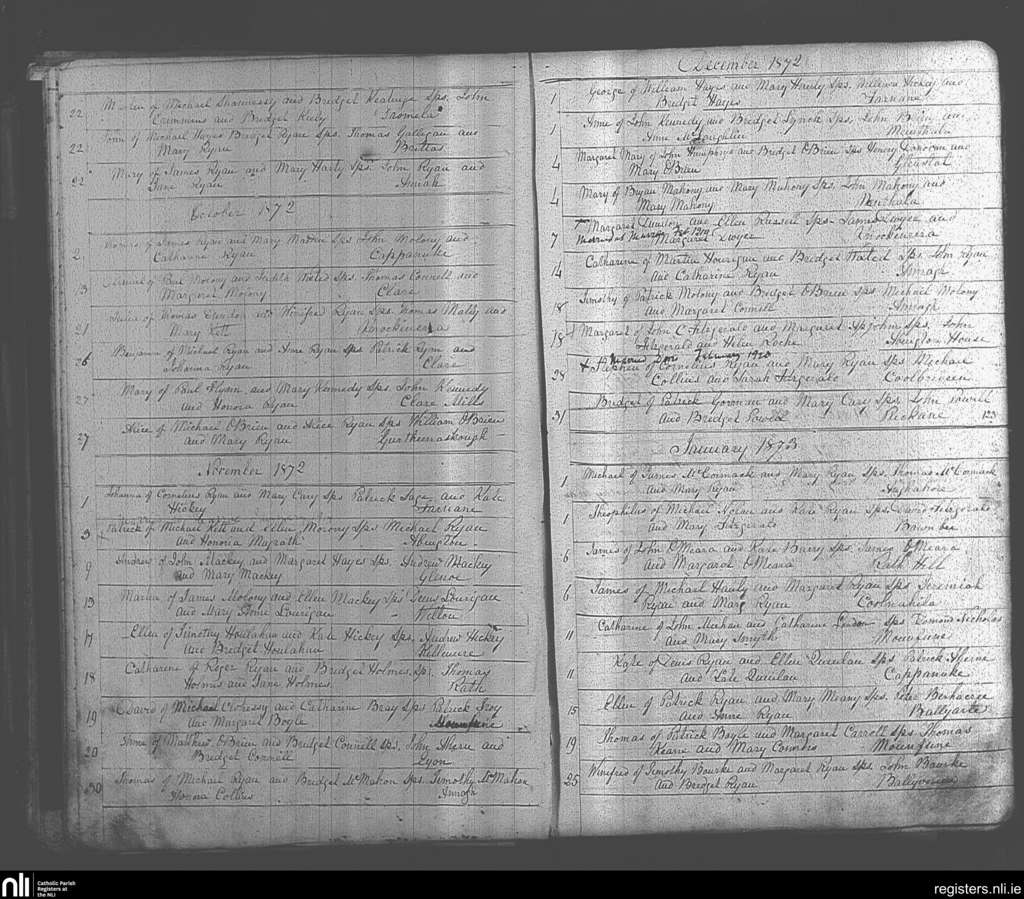 22 of Michael Shaunnessy and Bridget Sps. John
Crimmins and Bridget Kiely
22 of Michael Hayes Bridget Ryan Sps. Thomas Galligan and
Mary Ryan Brittas
22 Mary of James Ryan and Mary Harty Sps. John Ryan and
Jane Ryan Annah
October 1872
2 Thomas of James Ryan and Mary Madden Sps John Molony and
Catharine Ryan Cappanuke
13 of Paul Molony and Sps. Thomas Connell and
Margaret Molony Clare
21 of Thomas Dundon and Winifred Ryan Sps Thomas and
Mary Kett Knockeneara
26 Benjamin of Michael Ryan and Anne Ryan Sps Patrick Ryan and
Johanna Ryan Clare
27 Mary of Paul Flynn and Mary Kennedy Sps. John Kennedy
and Honora Ryan Clare Mills
27 Alice of Michael OBrien and Alice Ryan Sps William OBrien
and Mary Ryan
November 1872
1 Johanna of Cornelius Ryan and Mary Cary Sps Patrick and Kate
Hickey Farnane
3 Patrick of Michael Kett and Ellen Molony Sps Michael Ryan
and Honoria Magrath Abington
9 Andrew of John Mackey and Margaret Hayes Sps. Andrew Mackey
and Mary Mackey Glenoe
13 Maria of James Molony and Ellen Mackey Sps Denis Lounigan
and Mary Anne Lounigan Wilton
17 Ellen of Timothy Houlahan and Kate Hickey Sps. Andrew Hickey
and Bridget Houlahan
18 Catharine of Roger Ryan and Bridget Holmes Sps Thomas
Holmes and Jane Holmes Rath
19 David of Michael Clohessy and Catharine Bray Sps Patrick
and Margaret Boyle
20 Anne of Matthew OBrien and Bridget Connell Sps. John Ahern and
Bridget Connell Lyon
30 Thomas of Michael Ryan and Bridget McMahon Sps Timothy McMahon
Honora Collins Annagh
December 1872
1 George of William Hayes and Mary Hanly Sps. Hickey and
Bridget Hayes Farnane
1 Anne of John Kennedy and Bridget Lynch Sps. John and
Anne McLoughlin
4 Margaret Mary of John Humphrys and Bridget OBrien Sps Henry Donovan and
Mary OBrien
4 Mary of Bryan Mahony and Mary Mahony Sps. John Mahony and
Mary Mahony
7 Margaret Dundon and Ellen Russell Sps- James Dwyer and
Married at Murroe Feb 1909 Margaret Dwyer Knockeneara
14 Catharine of Martin Hourigan and Bridget Sps. John Ryan
and Catharine Ryan Annagh
18 Timothy of Patrick Molony and Bridget OBrien Sps Michael Molony
and Margaret Connell Annagh
18 Margaret of John C Fitzgerald and Margaret Sps. John
Fitzgerald and Helen Roche Abington House
Married February 1920
28 Stephen of Cornelius Ryan and Mary Ryan Sps Michael
Collins and Sarah Fitzgerald Coolbreeen
31 Bridget of Patrick Gorman and Mary Cary Sps John Powell
and Bridget Powell 123
January 1873
1 Michael of James McCormack and Mary Ryan Sps. Thomas McCormack
and Mary Ryan
1 Theophilus of Michael Noran and Kate Ryan Sps David Fitzgerald
and Mary Fitzgerald
6 James of John OMeara and Kate Barry Sps. James OMeara
and Margaret OMeara Rath Hill
6 James of Michael Hanly and Margaret Ryan Sps Jeremiah
Ryan and Mary Ryan Coolnahila
11 Catharine of John Meehan and Catharine Sps Nicholas
and Mary Smyth Mounfune
11 Kate of Denis Ryan and Ellen Quinlan Sps Patrick
and Kate Quinlan Cappanuke
15 Ellen of Patrick Ryan and Mary Meany Sps. Peter
and Anne Ryan Ballyarte
19 Thomas of Patrick Boyle and Margaret Carroll Sps Thomas
Keane and Mary Connors Mounfune
25 Winifred of Timothy Bourke and Margaret Ryan Sps. John Bourke
and Bridget Ryan
nli
Catholic Parish
Registers at
the NLI
registers.nli.ie